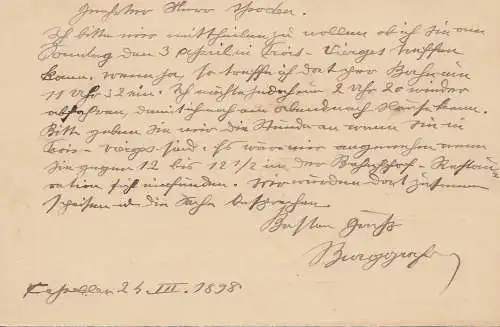 Geehrter Herr
Ich bitte mir mittheilen zu wollen ob ich Sie am
Sonntag den 3 April in Trois-Vierges treffen
kann. wenn ja, so treffe ich dort per Bahn um
11 Uhr 52 ein. Ich möchte jedoch um 2 Uhr 20 wieder
abfahren, damit ich noch am abend nach Hause kann.
Bitte geben Sie mir die Stunde an wann Sie in
Trois-vierges sind. Es wäre mir angenehm wenn
Sie gegen 12 bis 12 1/2 in der Bahnhof-Restau-
ration sich einfinden. Wir würden dort zusammen
speisen u die Sache besprechen.
Besten Gruß
Burggraf
24 III. 1898